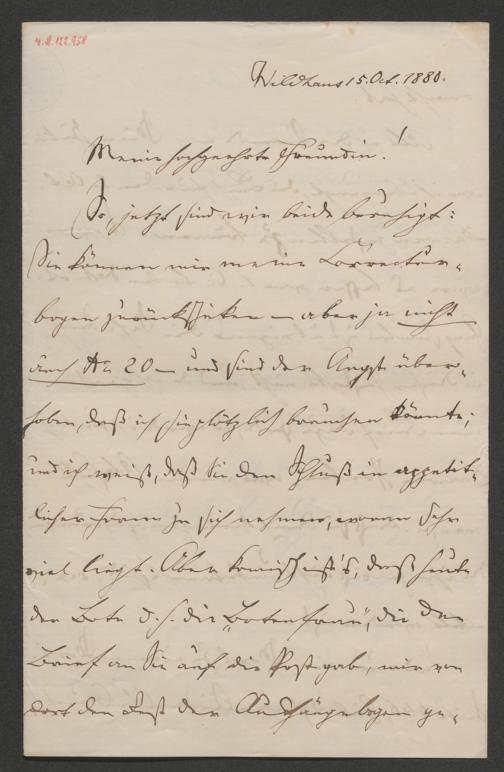 4.8.122.958
Wildhaus 15. Oct. 1880.
Meine hochgeehrte Freundin!
So, jetzt sind wir beide beruhigt:
Sie können mir meine Correctur-
bogen zurückschicken – aber ja nicht
durch 20 – und sind der Angst über-
hoben, daß ich sie plötzlich brauchen könnte;
und ich weiß, daß Sie den Schluß in appetit-
licher Form zu sich nehmen, woran sehr
viel liegt. Aber komisch ist's, daß heute
der Bote d. h. die „Botenfrau", die den
Brief an Sie auf die Post gab, mir von
dort den Rest der Aushängebogen ge-